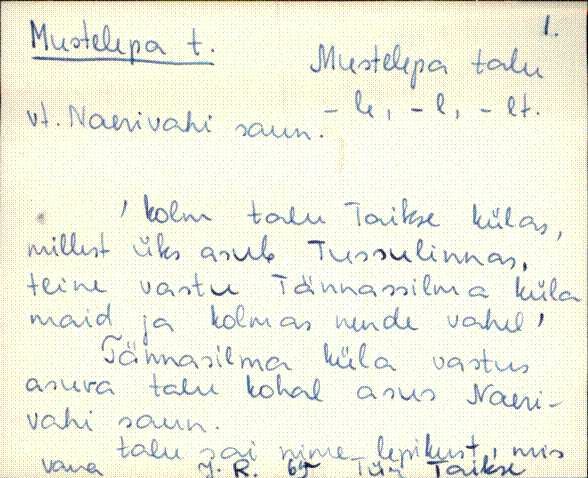 1.
Mustelepa t.
Mustelepa talu
- le, - l, - lt.
vt. Naerivahi saun.
' kolm talu Taikse külas,
millest üks asub Tussulinnas,
teine vastu Tännassilma küla
maid ja kolmas nende vahel '
Tännasilma küla vastus
asuva talu kohal asus Naeri-
vahi saun.
talu sai nime lepikust, mis
vana J. R. 65 Tür Taikse